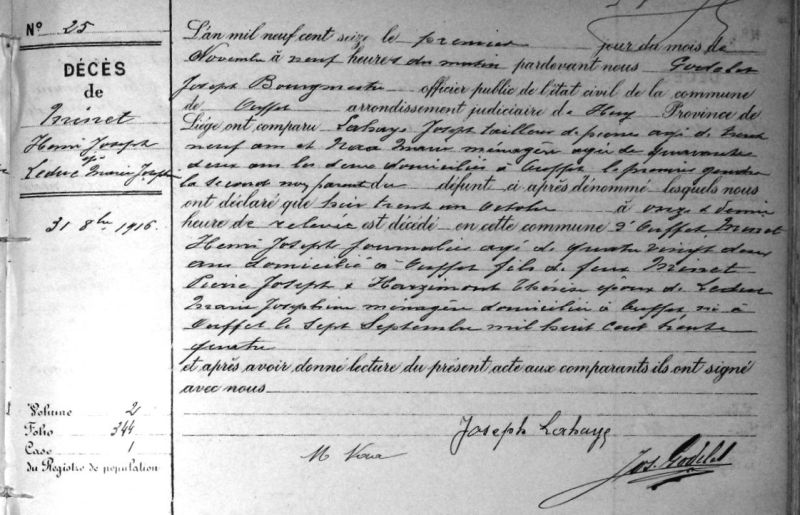 N° 25
DÉCÈS
de
Minet
Henri Joseph
Leduc Marie Joseph
31 8bre 1916.
Volume 2
Folio 344
Case 1
du Registre de population
L'an mil neuf cent seize le premier jour du mois de
Novembre à neuf heures du matin pardevant nous Godelet
Joseph Bourgmestre officier public de l'état civil de la commune
de Ouffet arrondissement judiciaire de Huy Province de
Liége ont comparu Lahaye Joseph tailleur de pierres agé de trente
neuf ans et Noca Marie ménagère agée de quarante
deux ans les deux domiciliés à Ouffet le premier gendre
la second non parent du défunt ci après dénommé lesquels nous
ont déclaré que hier trente un Octobre à onze & demie
heure de relevée est décédé en cette commune d'Ouffet Minet
Henri Joseph journalier agé de quatre vingt deux
ans domicilié à Ouffet fils de feux Minet
Pierre Joseph & Thérèse époux de Leduc
Marie Joséphine ménagère domiciliée à Ouffet né à
Ouffet le sept Septembre mil huit cent trente
quatre
et après avoir donné lecture du présent acte aux comparants ils ont signé
avec nous
Joseph Lahaye
M Noca
Jos. Godelet